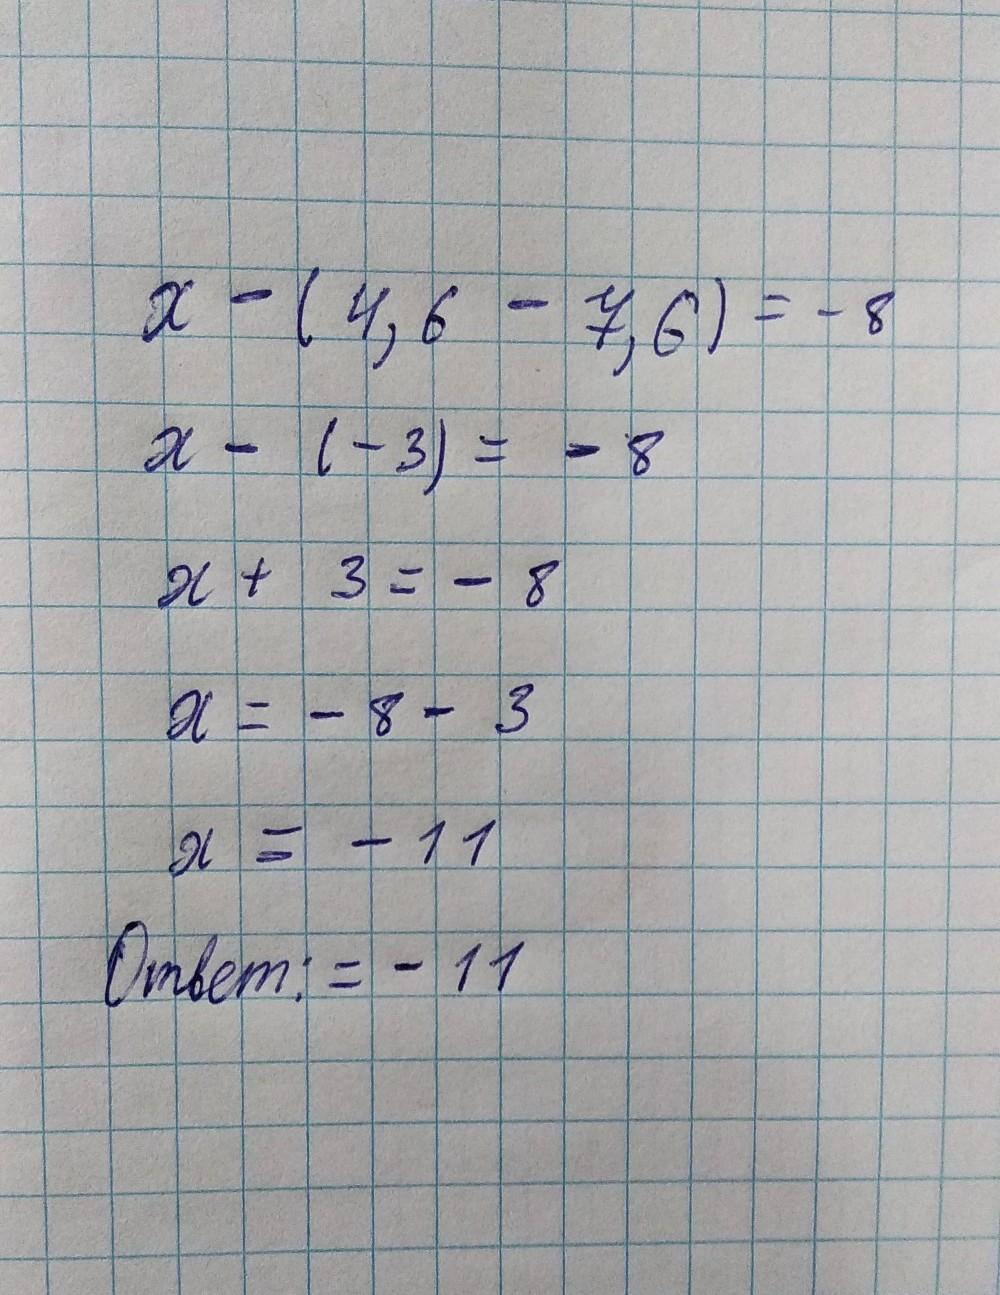 x - (4,6 - 7,6) = - 8
x - (-3) = - 8
x + 3 = - 8
x = - 8 - 3
x = - 11
Ответ: = - 11